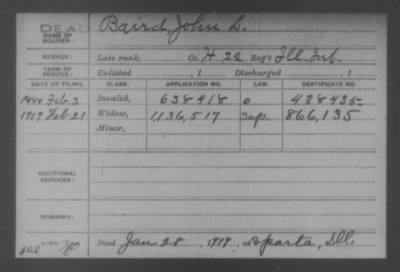 DEAD
NAME OF SOLDIER: Baird, John L.
SERVICE: Late rank, Co. H 22 Reg't Ill. Inf.
TERM OF SERVICE: Enlisted , 1 Discharged , 1
DATE OF FILING. CLASS. APPLICATION NO. LAW. CERTIFICATE NO.
Feb. 3 Invalid, 638418 488435
1919 Feb 21 Widow, 1136,517 866,135
Minor,
ADDITIONAL SERVICES:
REMARKS:
Died Jan 28, 1919, at Sparta, Ill.